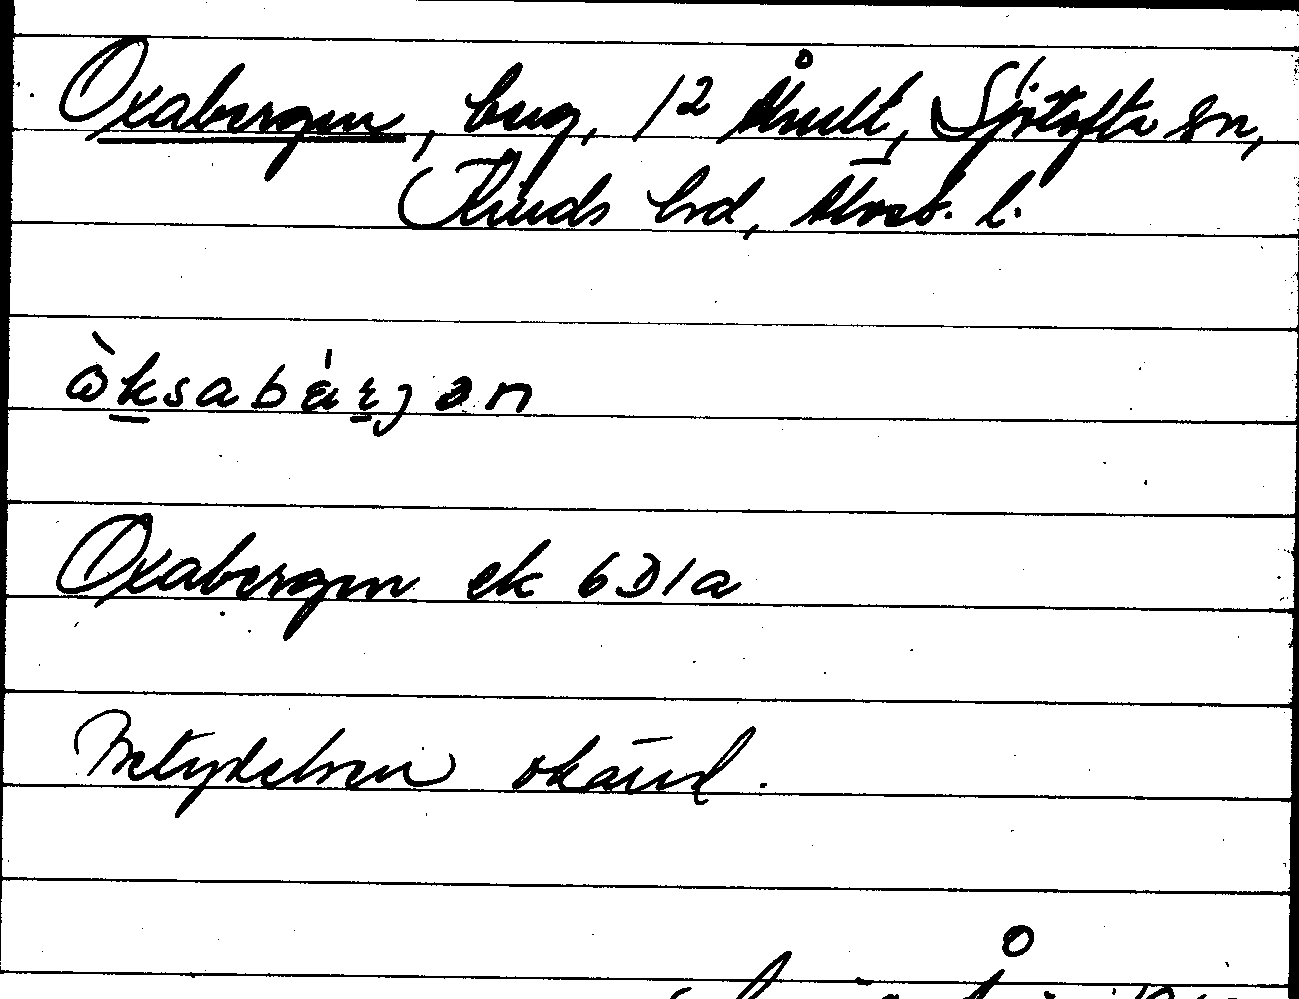 Oxabergen, bug, 1² Ahult, Sjötofta sn,
Kinds hrd, Älvsb. l.
òksabɛ́rjən
Oxabergen ek 6D1a
Betydelsen okänd.